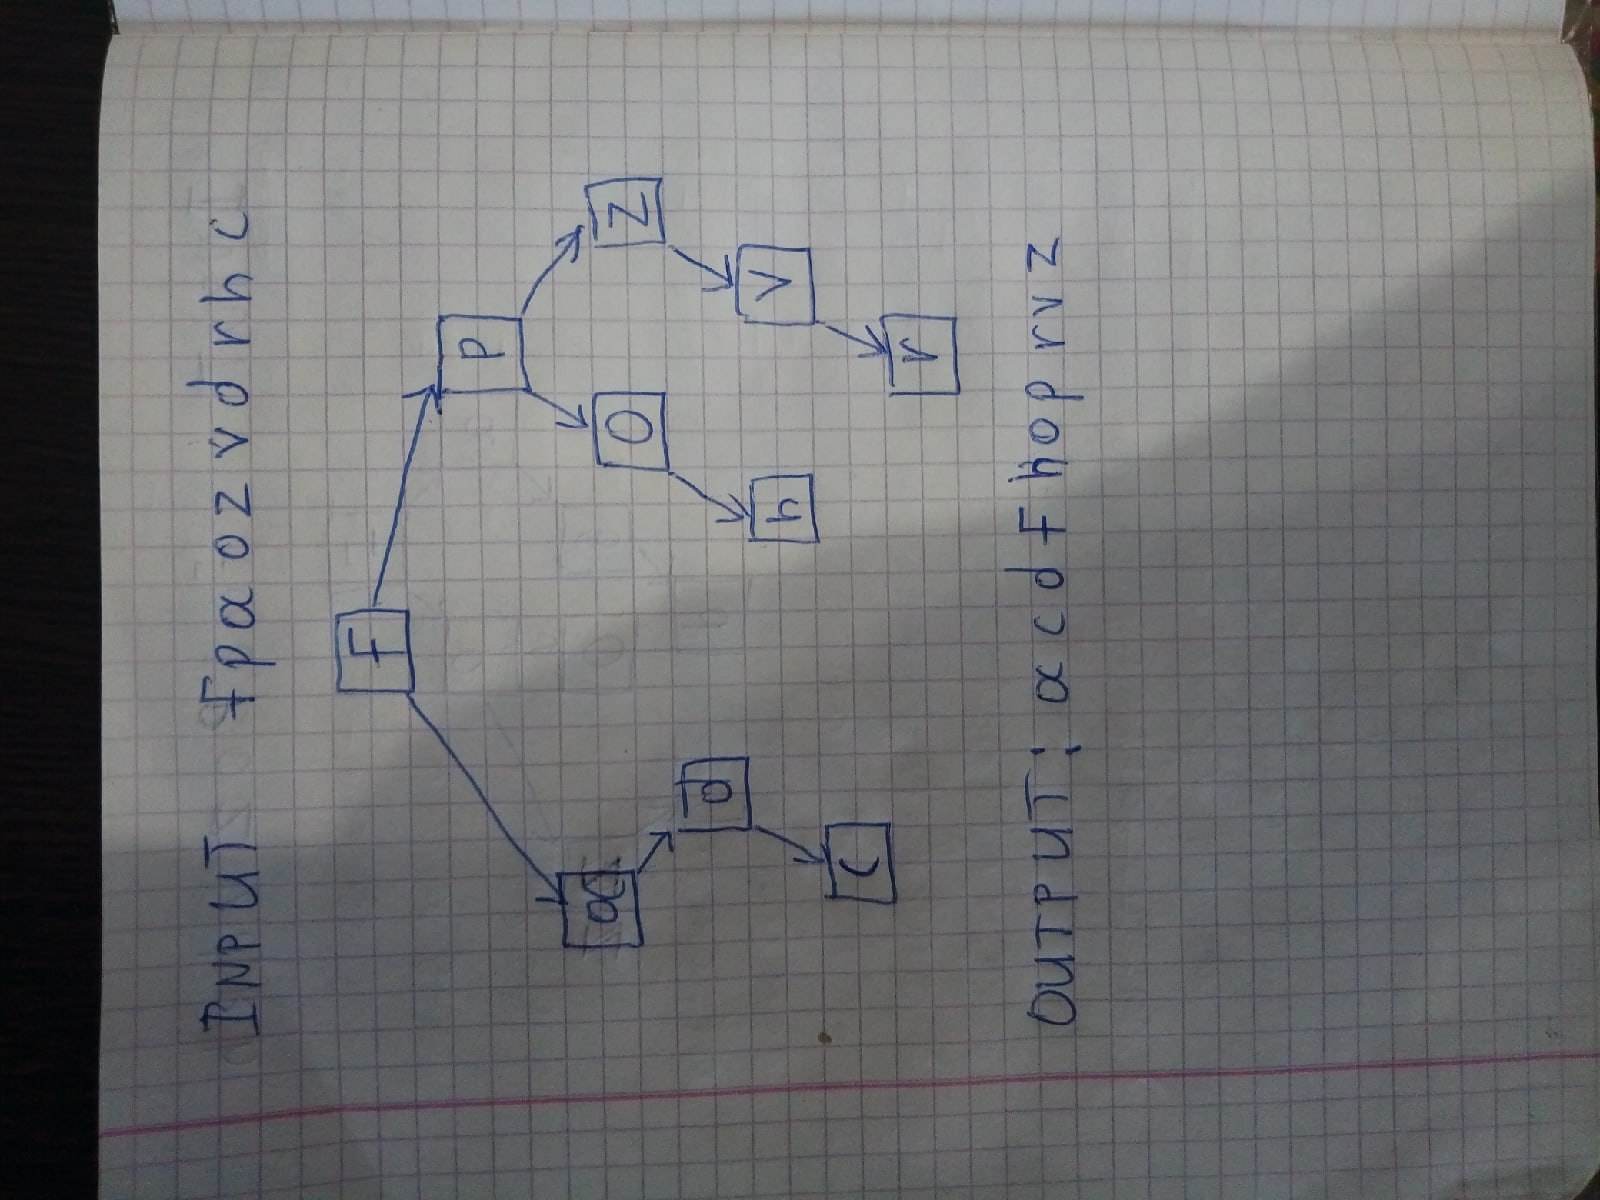 INPUT Fpaozvdrhc
F
p
a
O
Z
d
h
V
C
r
OUTPUT: acdFhoprvz